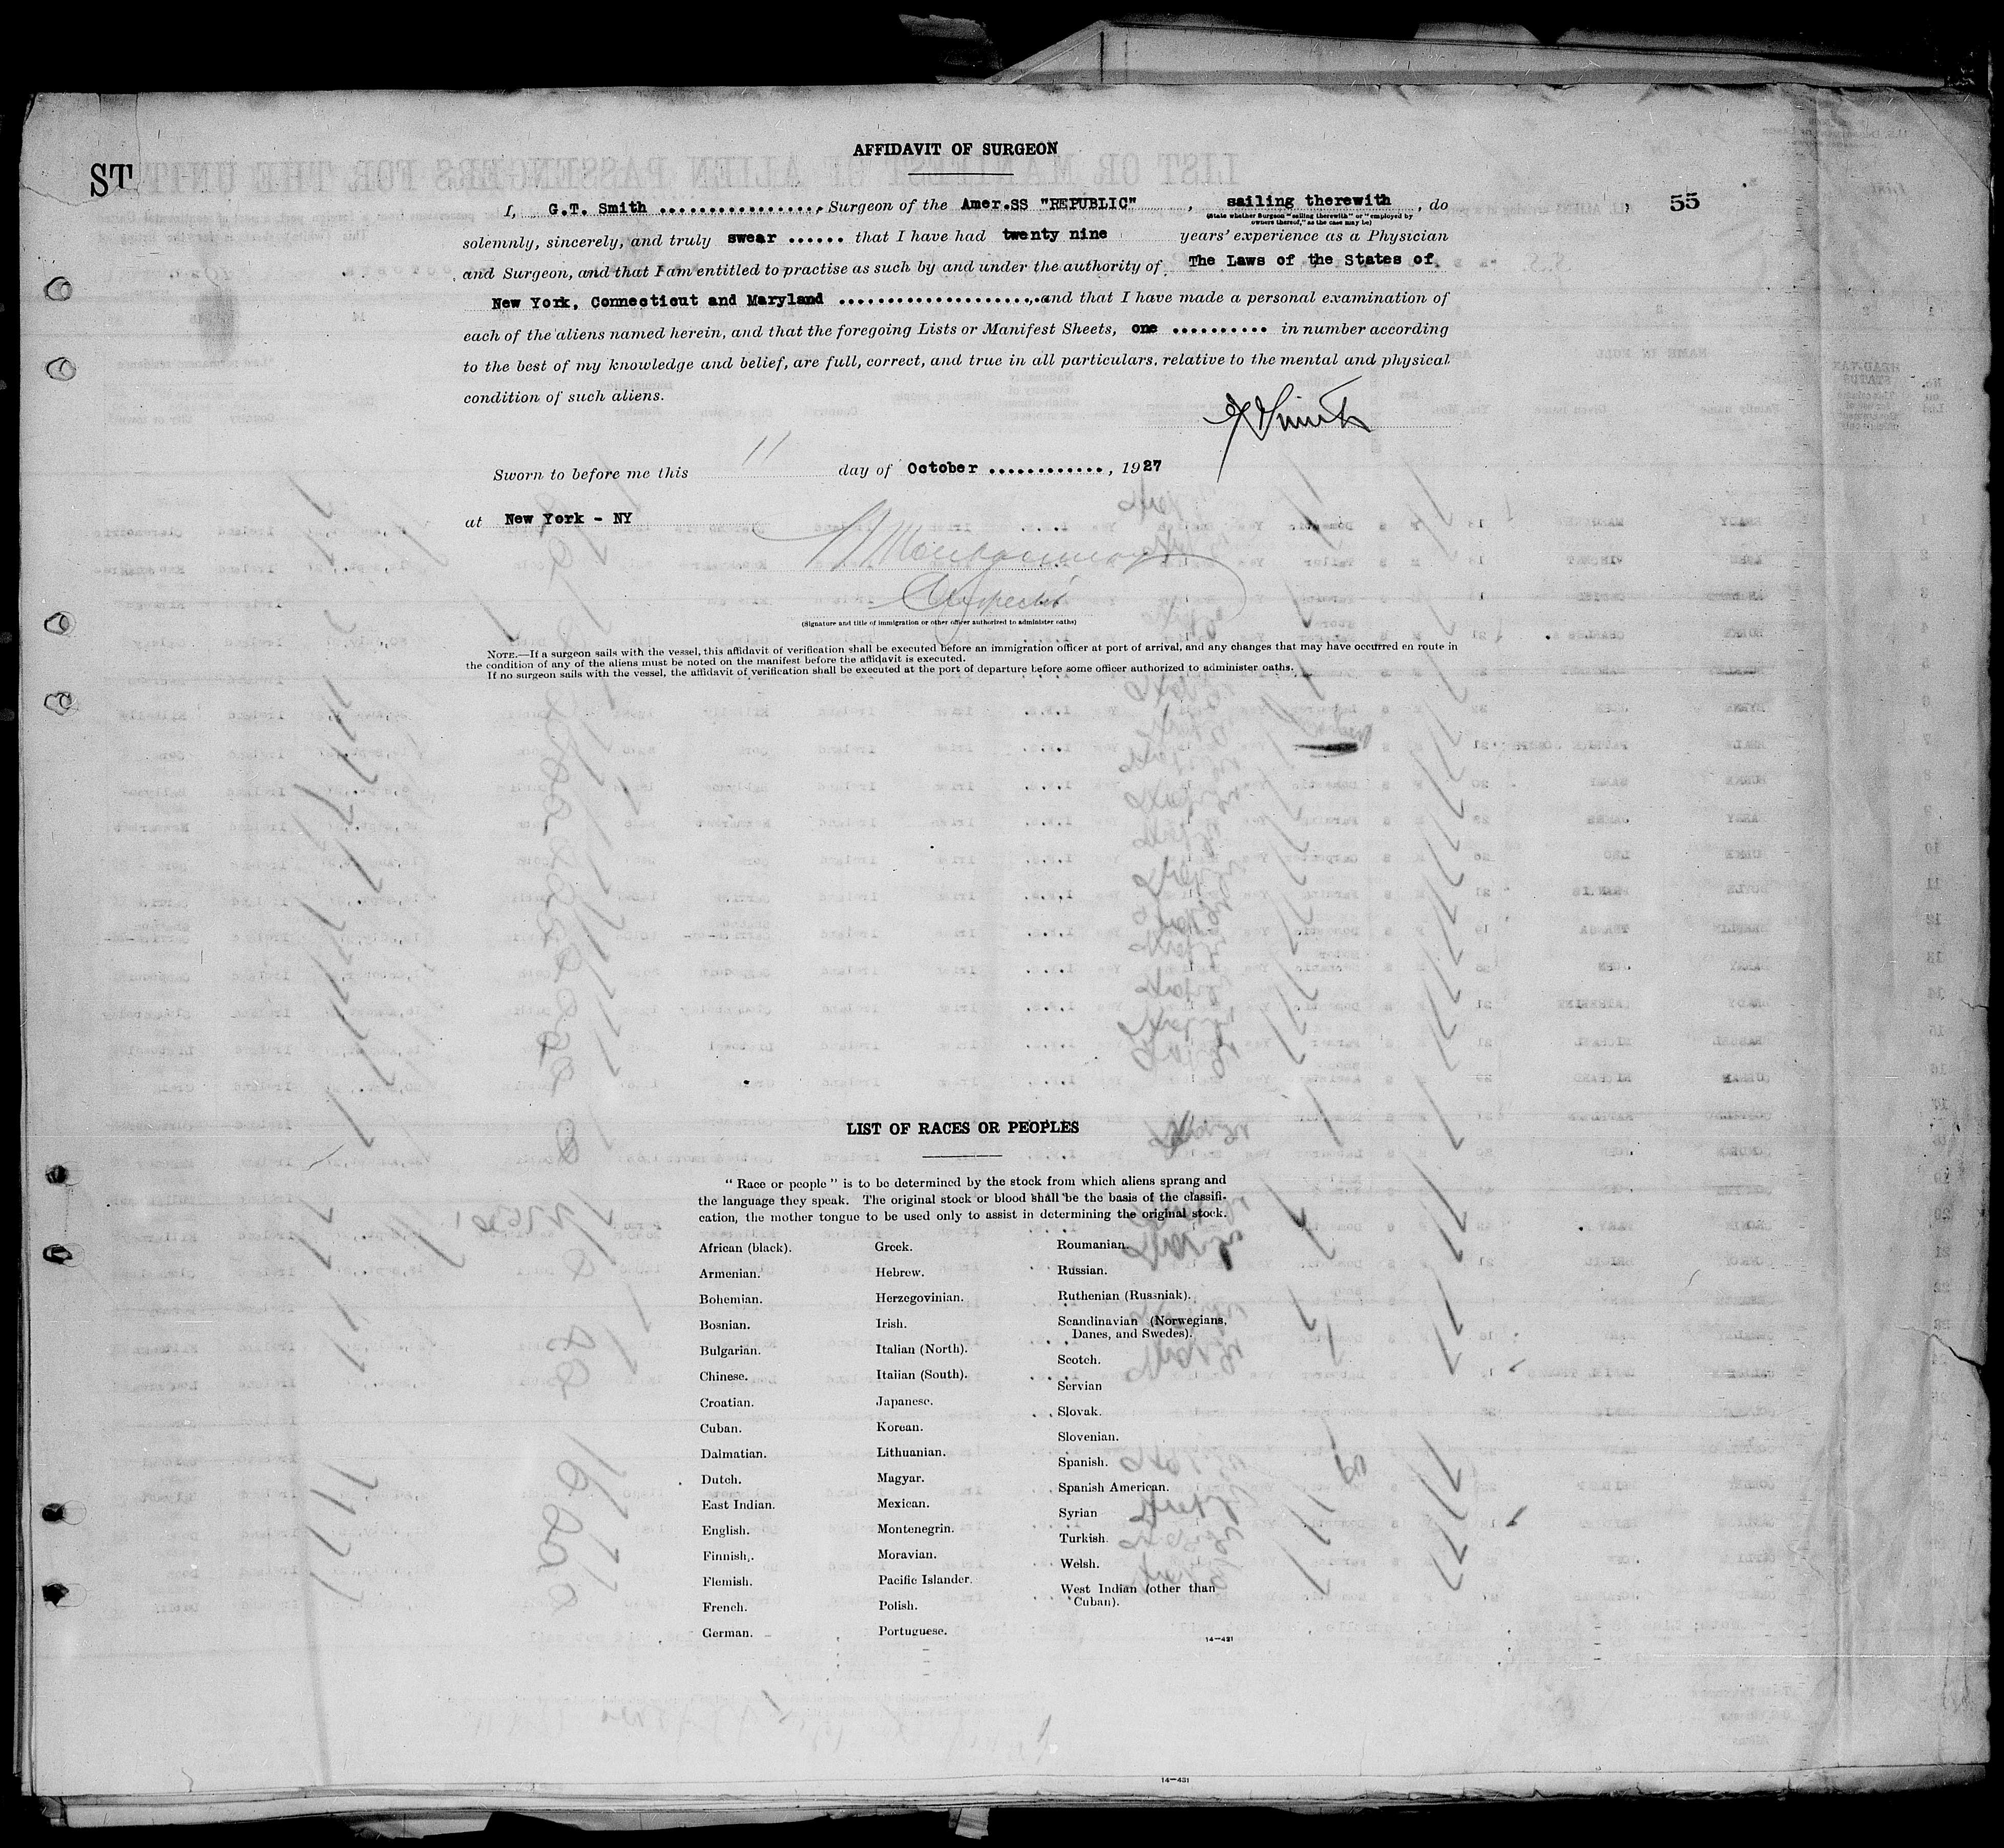 AFFIDAVIT OF SURGEON
ST
55
I, G.T. Smith ................., Surgeon of the Amer.SS "REPUBLIC" , sailing therewith , do
(State whether Surgeon "sailing therewith" or "employed by
owners thereof," as the case may be)
solemnly, sincerely, and truly swear ...... that I have had twenty nine years' experience as a Physician
and Surgeon, and that I am entitled to practise as such by and under the authority of The Laws of the States of
New York, Connecticut and Maryland ...................., and that I have made a personal examination of
each of the aliens named herein, and that the foregoing Lists or Manifest Sheets, one .......... in number according
to the best of my knowledge and belief, are full, correct, and true in all particulars, relative to the mental and physical
condition of such aliens.
Smith
Sworn to before me this 11 day of October ............, 1927
at New York - NY
Montgomery
Inspector
(Signature and title of immigration or other officer authorized to administer oaths)
NOTE.—If a surgeon sails with the vessel, this affidavit of verification shall be executed before an immigration officer at port of arrival, and any changes that may have occurred en route in
the condition of any of the aliens must be noted on the manifest before the affidavit is executed.
If no surgeon sails with the vessel, the affidavit of verification shall be executed at the port of departure before some officer authorized to administer oaths.
LIST OF RACES OR PEOPLES
"Race or people" is to be determined by the stock from which aliens sprang and
the language they speak. The original stock or blood shall be the basis of the classifi-
cation, the mother tongue to be used only to assist in determining the original stock.
African (black).
Armenian.
Bohemian.
Bosnian.
Bulgarian.
Chinese.
Croatian.
Cuban.
Dalmatian.
Dutch.
East Indian.
English.
Finnish.
Flemish.
French.
German.
Greek.
Hebrew.
Herzegovinian.
Irish.
Italian (North).
Italian (South).
Japanese.
Korean.
Lithuanian.
Magyar.
Mexican.
Montenegrin.
Moravian.
Pacific Islander.
Polish.
Portuguese.
Roumanian.
Russian.
Ruthenian (Russniak).
Scandinavian (Norwegians,
Danes, and Swedes).
Scotch.
Servian
Slovak.
Slovenian.
Spanish.
Spanish American.
Syrian
Turkish.
Welsh.
West Indian (other than
Cuban).
14—421
14—431